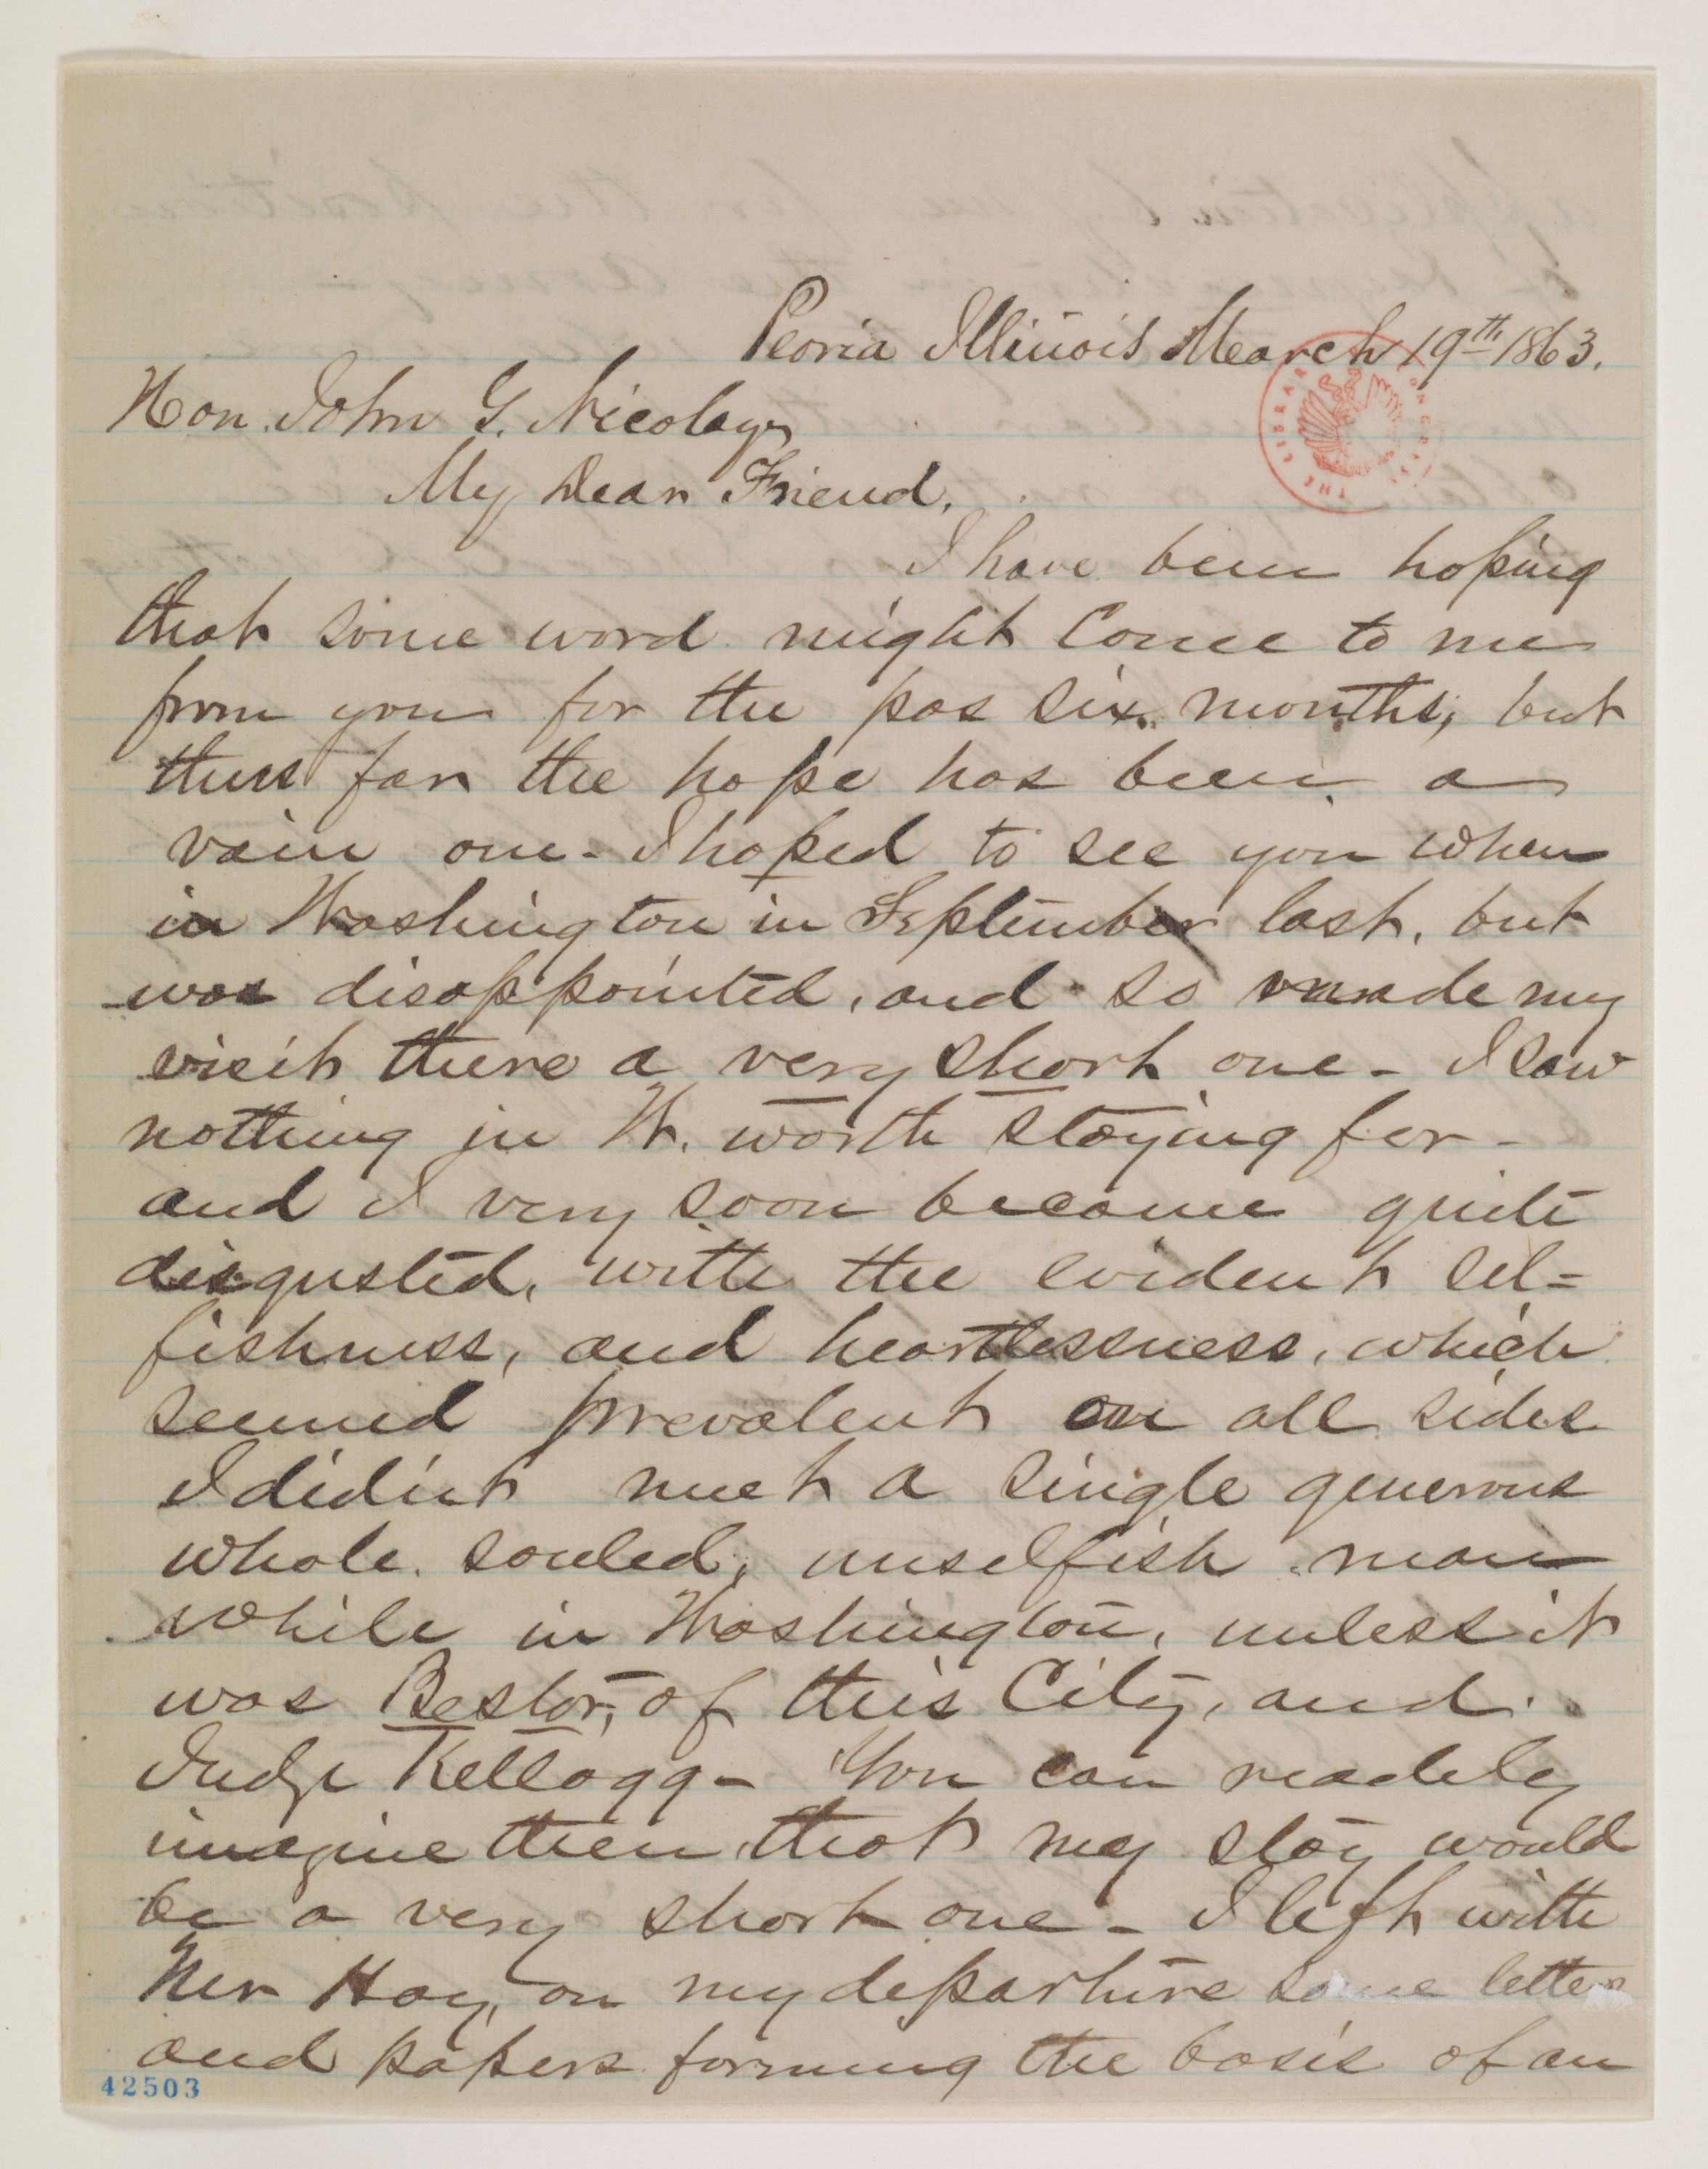 Peoria Illinois March 19th 1863.
Hon. John G. Nicolay
My Dear Friend,
I have been hoping
that some word might come to me
from you for the pas six months, but
thus far the hope has been a
vain one - I hoped to see you when
in Washington in September last, but
was disappointed, and so made my
visit there a very short one - I saw
nothing in W. worth staying for -
and I very soon became quite
disgusted, with the evident sel=
fishness, and heartlessness, which
seemed prevalent on all sides
I didn't meet a single generous
whole souled, unselfish man
while in Washington, unless it
was Bestor, of this City, and
Judge Kellogg - You can readily
imagine then that my stay would
be a very short one - I left with
Mr Hay, on my departure some letters
and papers forming the basis of an
42503
THE LIBRARY CONGRESS